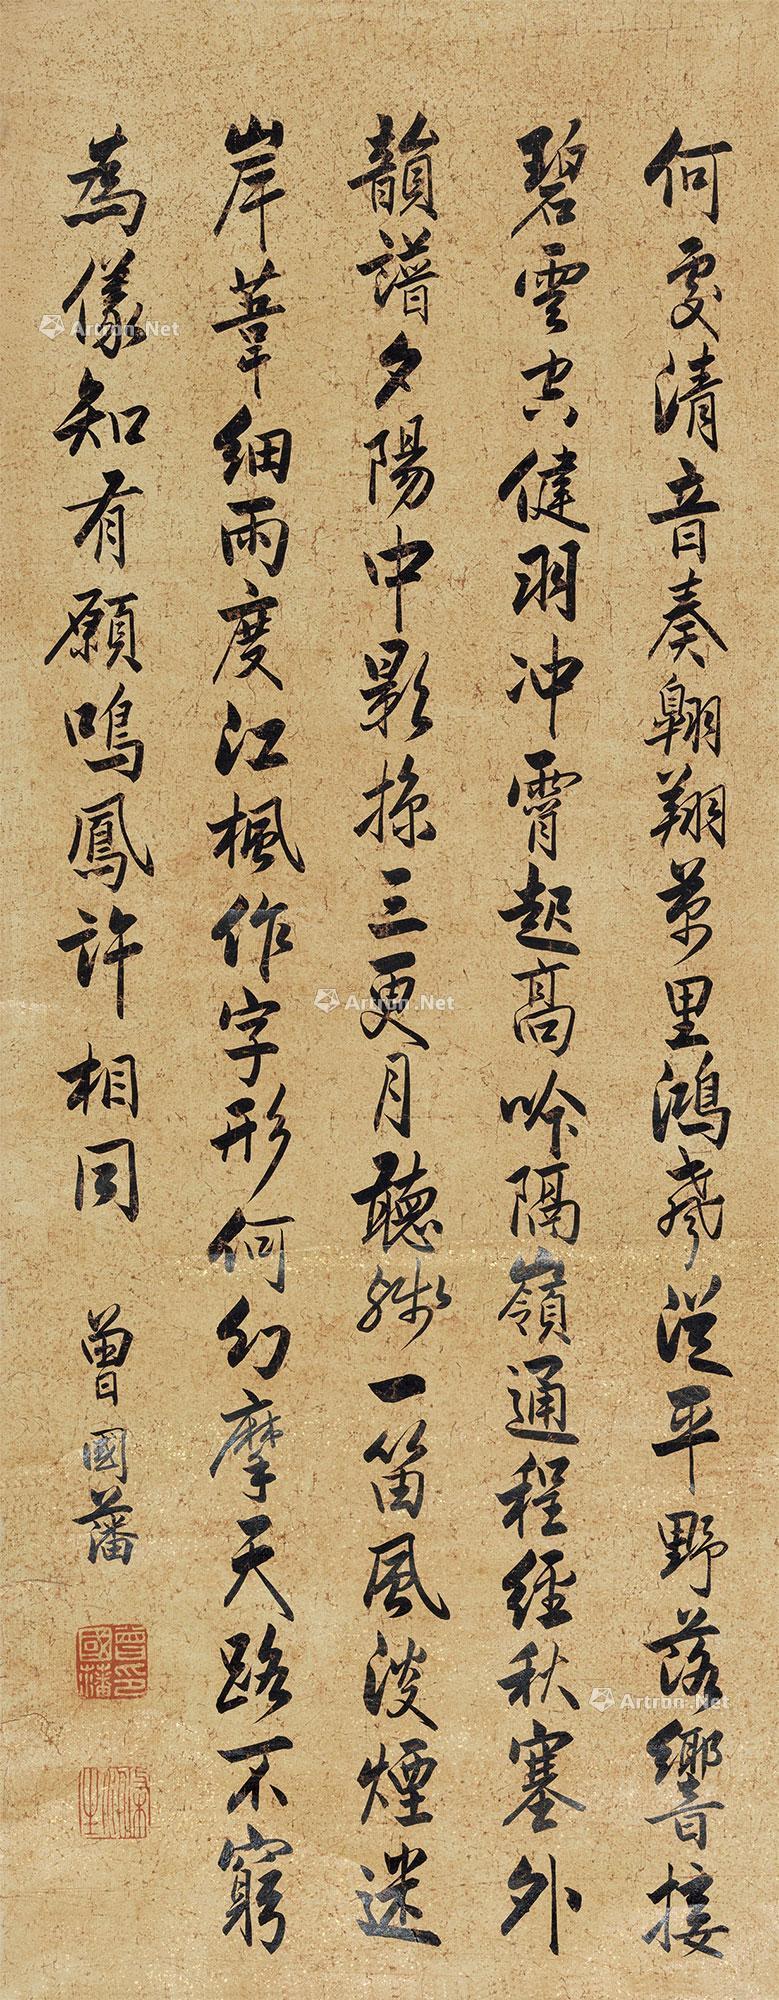 何處清音奏翱翔萬里鴻聲從平野落響接
碧雲空健羽冲霄起高吟隔嶺通程經秋塞外
韻譜夕陽中影掠三更月聽殘一笛風淡煙迷
岸葦細雨度江楓作字形何幻摩天路不窮
為儀知有願鳴鳳許相同
曾國藩
曾國藩印
Artron.Net
Artron.Net
Artron.Net